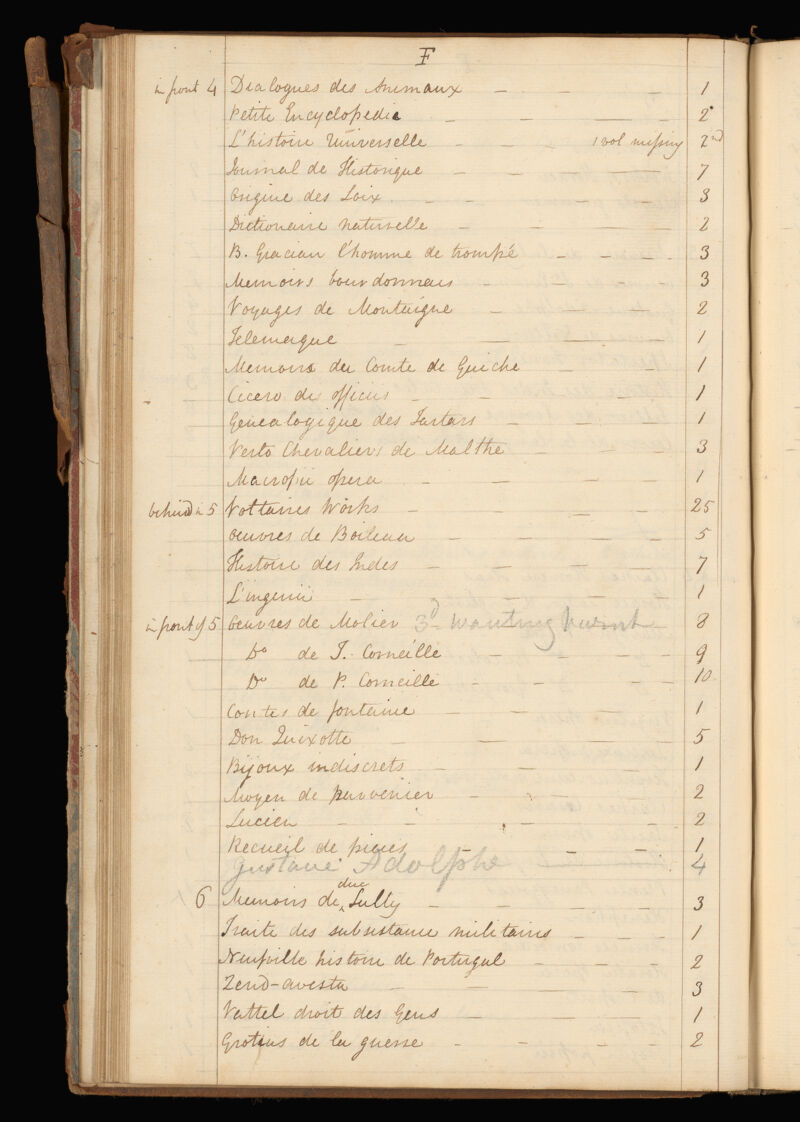 F
in front 4 Dialogues des Animaux 1
Petite Encyclopedie 2
L'histoire Universelle 1 vol missing 2nd
Journal de Historique 7
Origine des Loix 3
Dictionaire naturelle 2
B. Gracian l'homme de trompé 3
Memoirs bourdonnais 3
Voyages de Montaigne 2
Telemaque 1
Memoirs du Comte de Guiche 1
Cicero des officiis 1
Genealogique des Tartars 1
Verto Chevaliers de Malthe 3
Macropii opera 1
behind in 5 Voltaires Works 25
oeuvres de Boileau 5
Histoire des Indes 7
L'ingenii 1
in front of 5 oeuvres de Molier 3d wanting 8
Do de T. Corneille 9
Do de P. Corneille 10
Contes de fontaine 1
Don Quixotte 5
Bijoux indiscrets 1
Moyen de parvenier 2
Lucien 2
Recueil de pieces 1
Gustave Adolphe 4
6 Memoirs de duc Sully 3
Traite des subsistance militaires 1
Neufville histoire de Portugal 2
Zend-avesta 3
Vattel droit des Gens 1
Grotius de la guerre 2